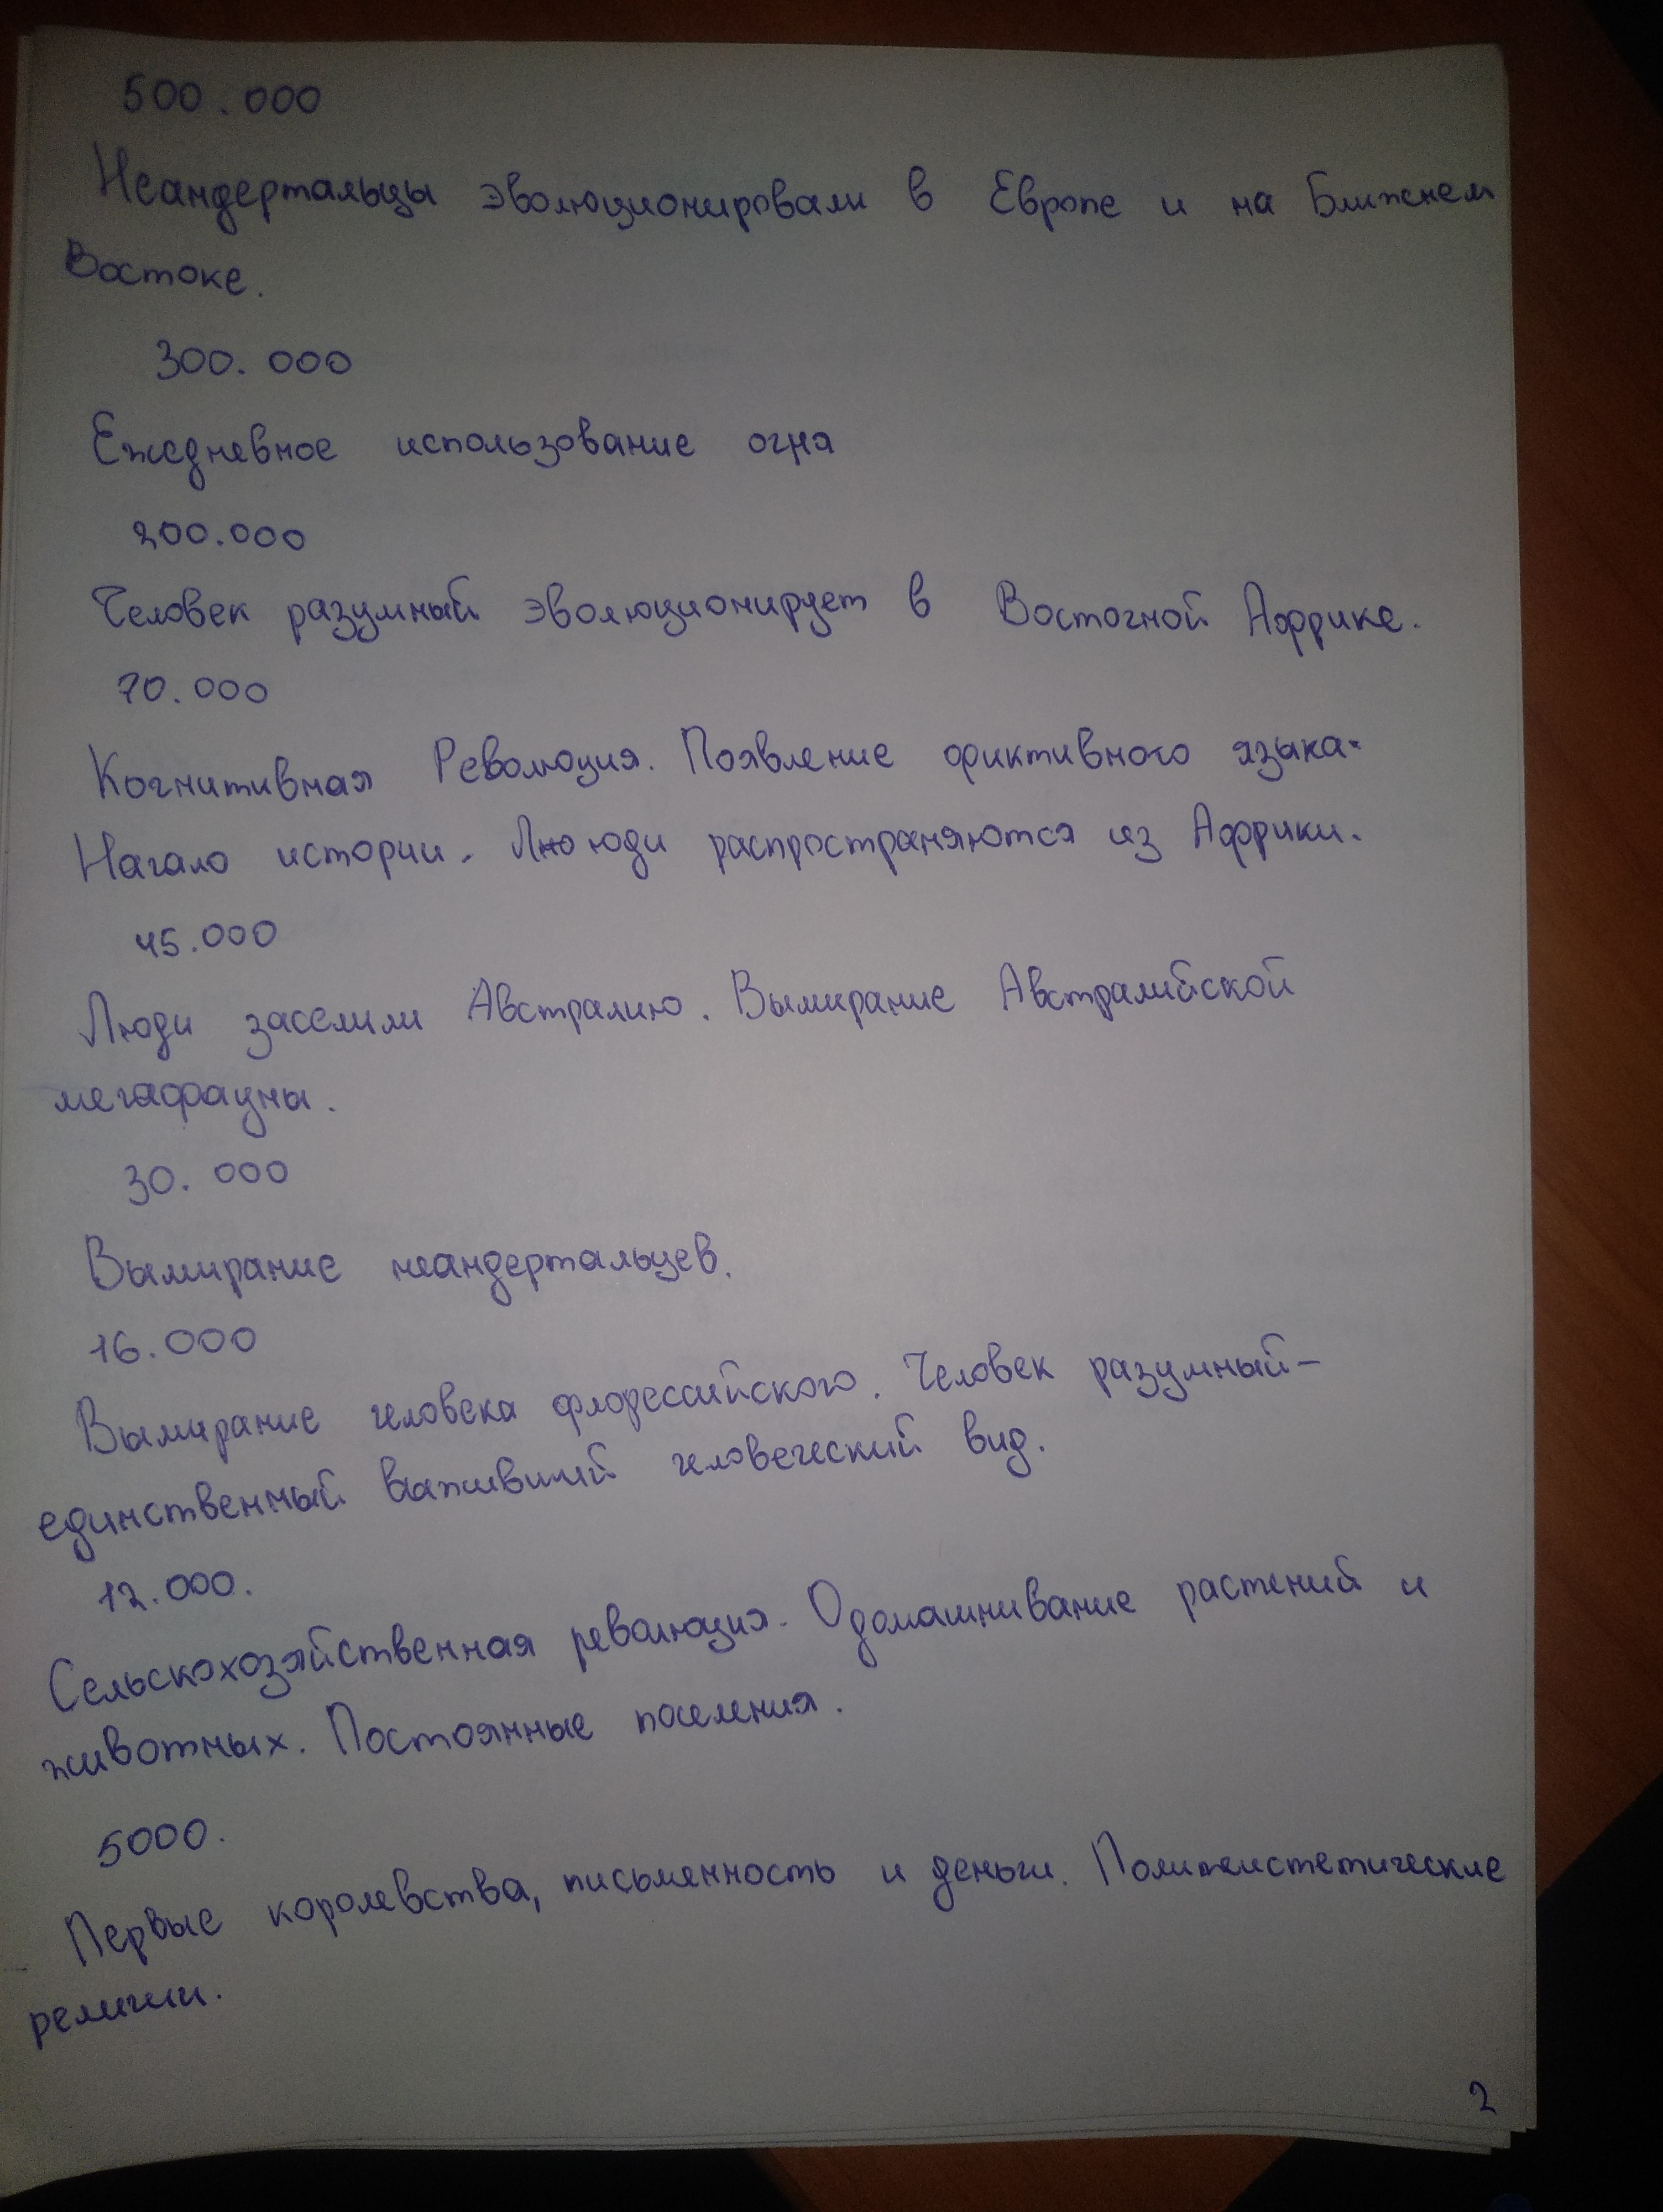 500.000
Неандертальцы эволюционировали в Европе и на Ближнем
Востоке.
300.000
Ежедневное использование огня
200.000
Человек разумный эволюционирует в Восточной Африке.
70.000
Когнитивная Революция. Появление фиктивного языка.
Начало истории. Люди распространяются из Африки.
45.000
Люди заселили Австралию. Вымирание Австралийской
мегафауны.
30.000
Вымирание неандертальцев.
16.000
Вымирание человека флорессийского. Человек разумный-
единственный выживший человеческий вид.
12.000.
Сельскохозяйственная революция. Одомашнивание растений и
животных. Постоянные поселения.
5000.
Первые королевства, письменность и деньги. Политеистетические
религии.
2